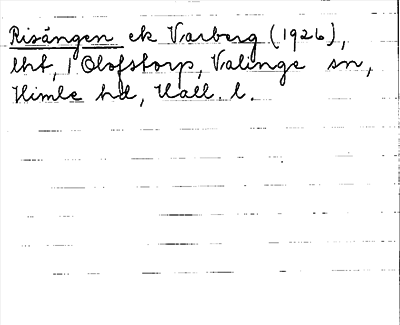 Risängen ek Varberg (1926),
lht, / Olofstorp, Valinge sn,
Himle hd, Hall. l.